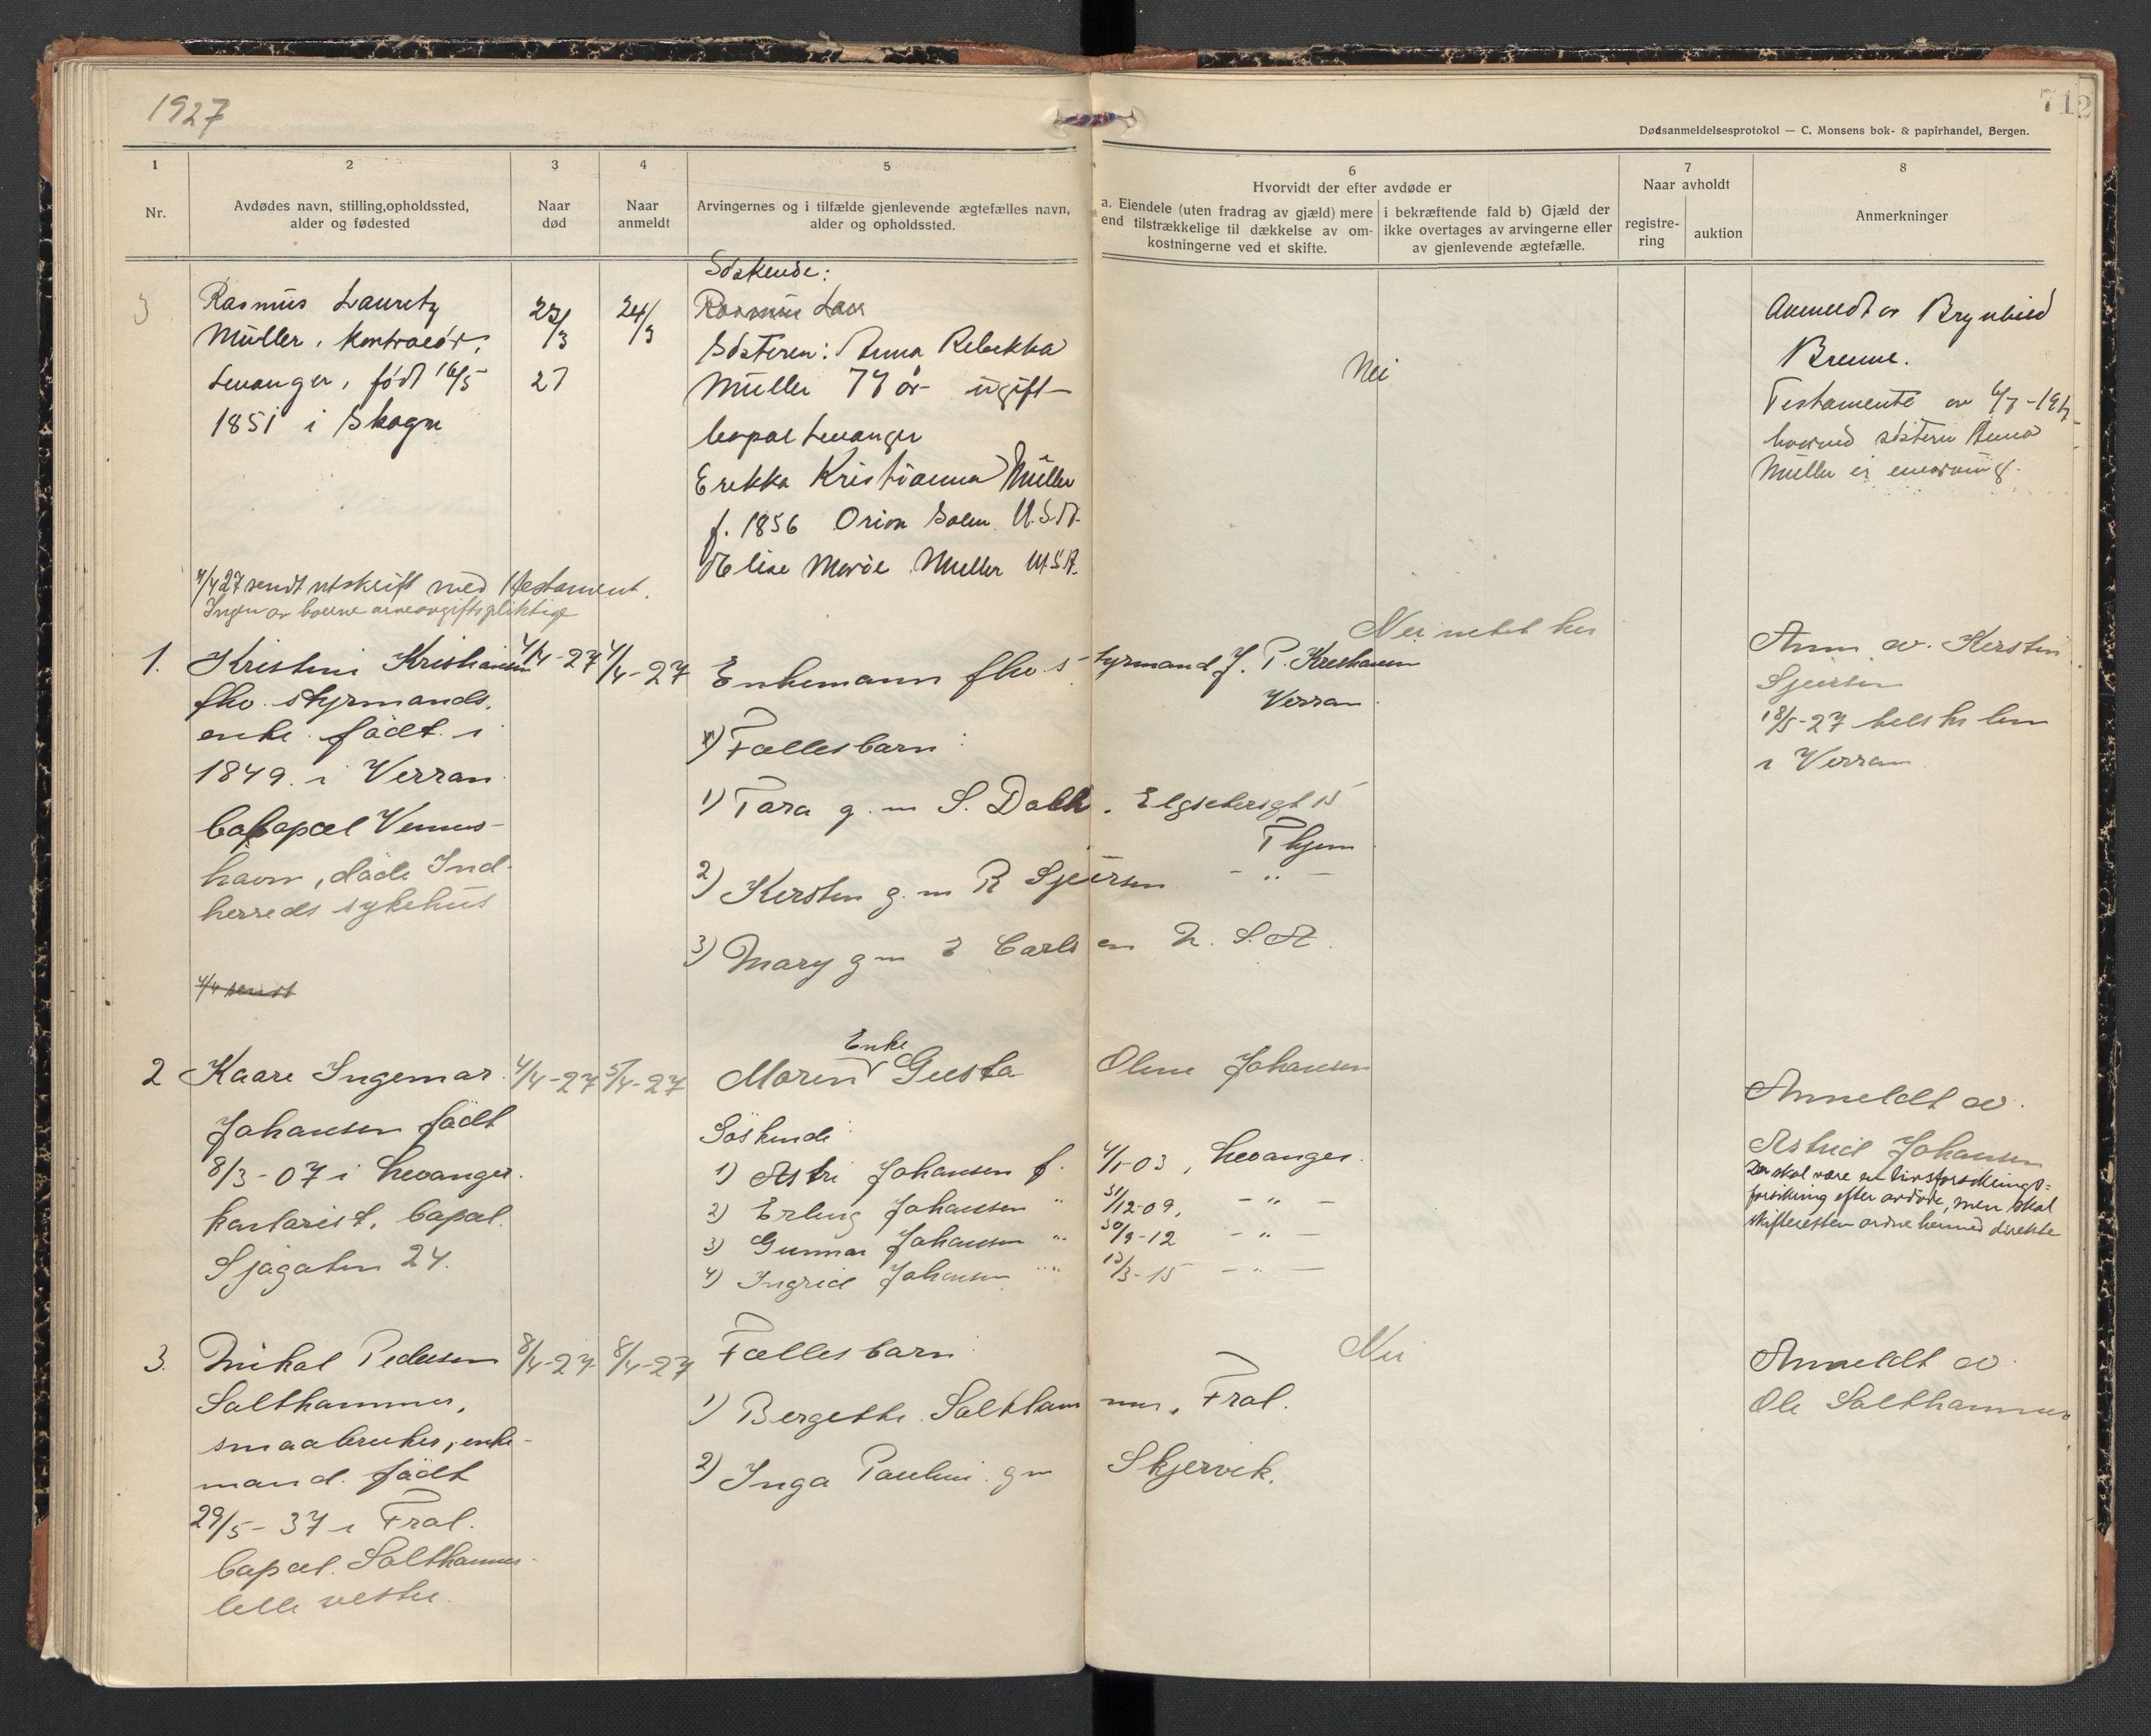 1927
712
Dødsanmeldelsesprotokol — C. Monsens bok- & papirhandel, Bergen.
1
2
3
4
5
6
7
8
Nr.
Avdødes navn, stilling, opholdssted,
alder og fødested
Naar
død
Naar
anmeldt
Arvingernes og i tilfælde gjenlevende ægtefælles navn,
alder og opholdssted.
Hvorvidt der efter avdøde er
a. Eiendele (uten fradrag av gjæld) mere
end tilstrækkelige til dækkelse av om-
kostningerne ved et skifte.
i bekræftende fald b) Gjæld der
ikke overtages av arvingerne eller
av gjenlevende ægtefælle.
Naar avholdt
registre-
ring
auktion
Anmerkninger
3
Rasmus Lauretz
Müller, kontrolør,
Levanger, født 16/5
1851 i Skogn
23/3
27
24/3
Søskende:
Rasmus Lau
Søsteren: Anna Rebekka
Müller 77 år ugift
bopæl Levanger
Erekka Kristianna Müller
f. 1856 Orion Solem U.S.A.
Elise Marie Müller U.S.A.
Nei
Anmeldt av Brynhild
Brenne.
Testamente av
hvorved søsteren Anna
Müller er enearving.
4/4 27 sendt utskrift med 1 testament.
Ingen av boerne arveavgiftspliktige
1.
Kristine Kristiansen
fhv. styrmands
enke født i
1849 i Verran
bopæl Venus-
havn, døde Ind-
herreds sykehus
4/4 sendt
4/4-27
4/4-27
Enkemann fhv styrmand J. P. Kristiansen
Verran
Fællesbarn:
1) Tara g. m S. Dalh. Elgsetersgt 15
Thjem
2) Kersten g. m R Sjeirsen - " -
3) Mary g m E Carlsen U. S. A.
Nei intet her
Anm av. Kersten
Sjeirsen
18/5-27
i Verran
2
Kaare Ingemar
Johansen født
8/3-07 i Levanger.
kontorist, bopæl
Sjøgaten 24.
4/4-27
5/4-27
Enke
Maren Gusta Oline Johansen
Søskende
1) Astri Johansen f. 4/1-03, Levanger.
2) Erling Johansen " 31/12-09, - " -
3) Gunnar Johansen " 30/9-12 - " -
4) Ingrid Johansen " 13/3-15 - " -
Anmeldt av.
Astrid Johansen
Der skal være en livsforsikrings-
forsikring efter avdøde, men skal
skifteretten ordne hermed direkte
3.
Mikal Pedersen
Salthammer,
smaabruker, enke-
mand. født
29/5-37 i Frol.
bopæl. Salthammer
lille vestre.
8/4-27
8/4-27
Fællesbarn
1) Bergette Salthammer, Frol.
2) Inga Pauline g m Skjervik.
Nei
Anmeldt av
Ole Salthammer